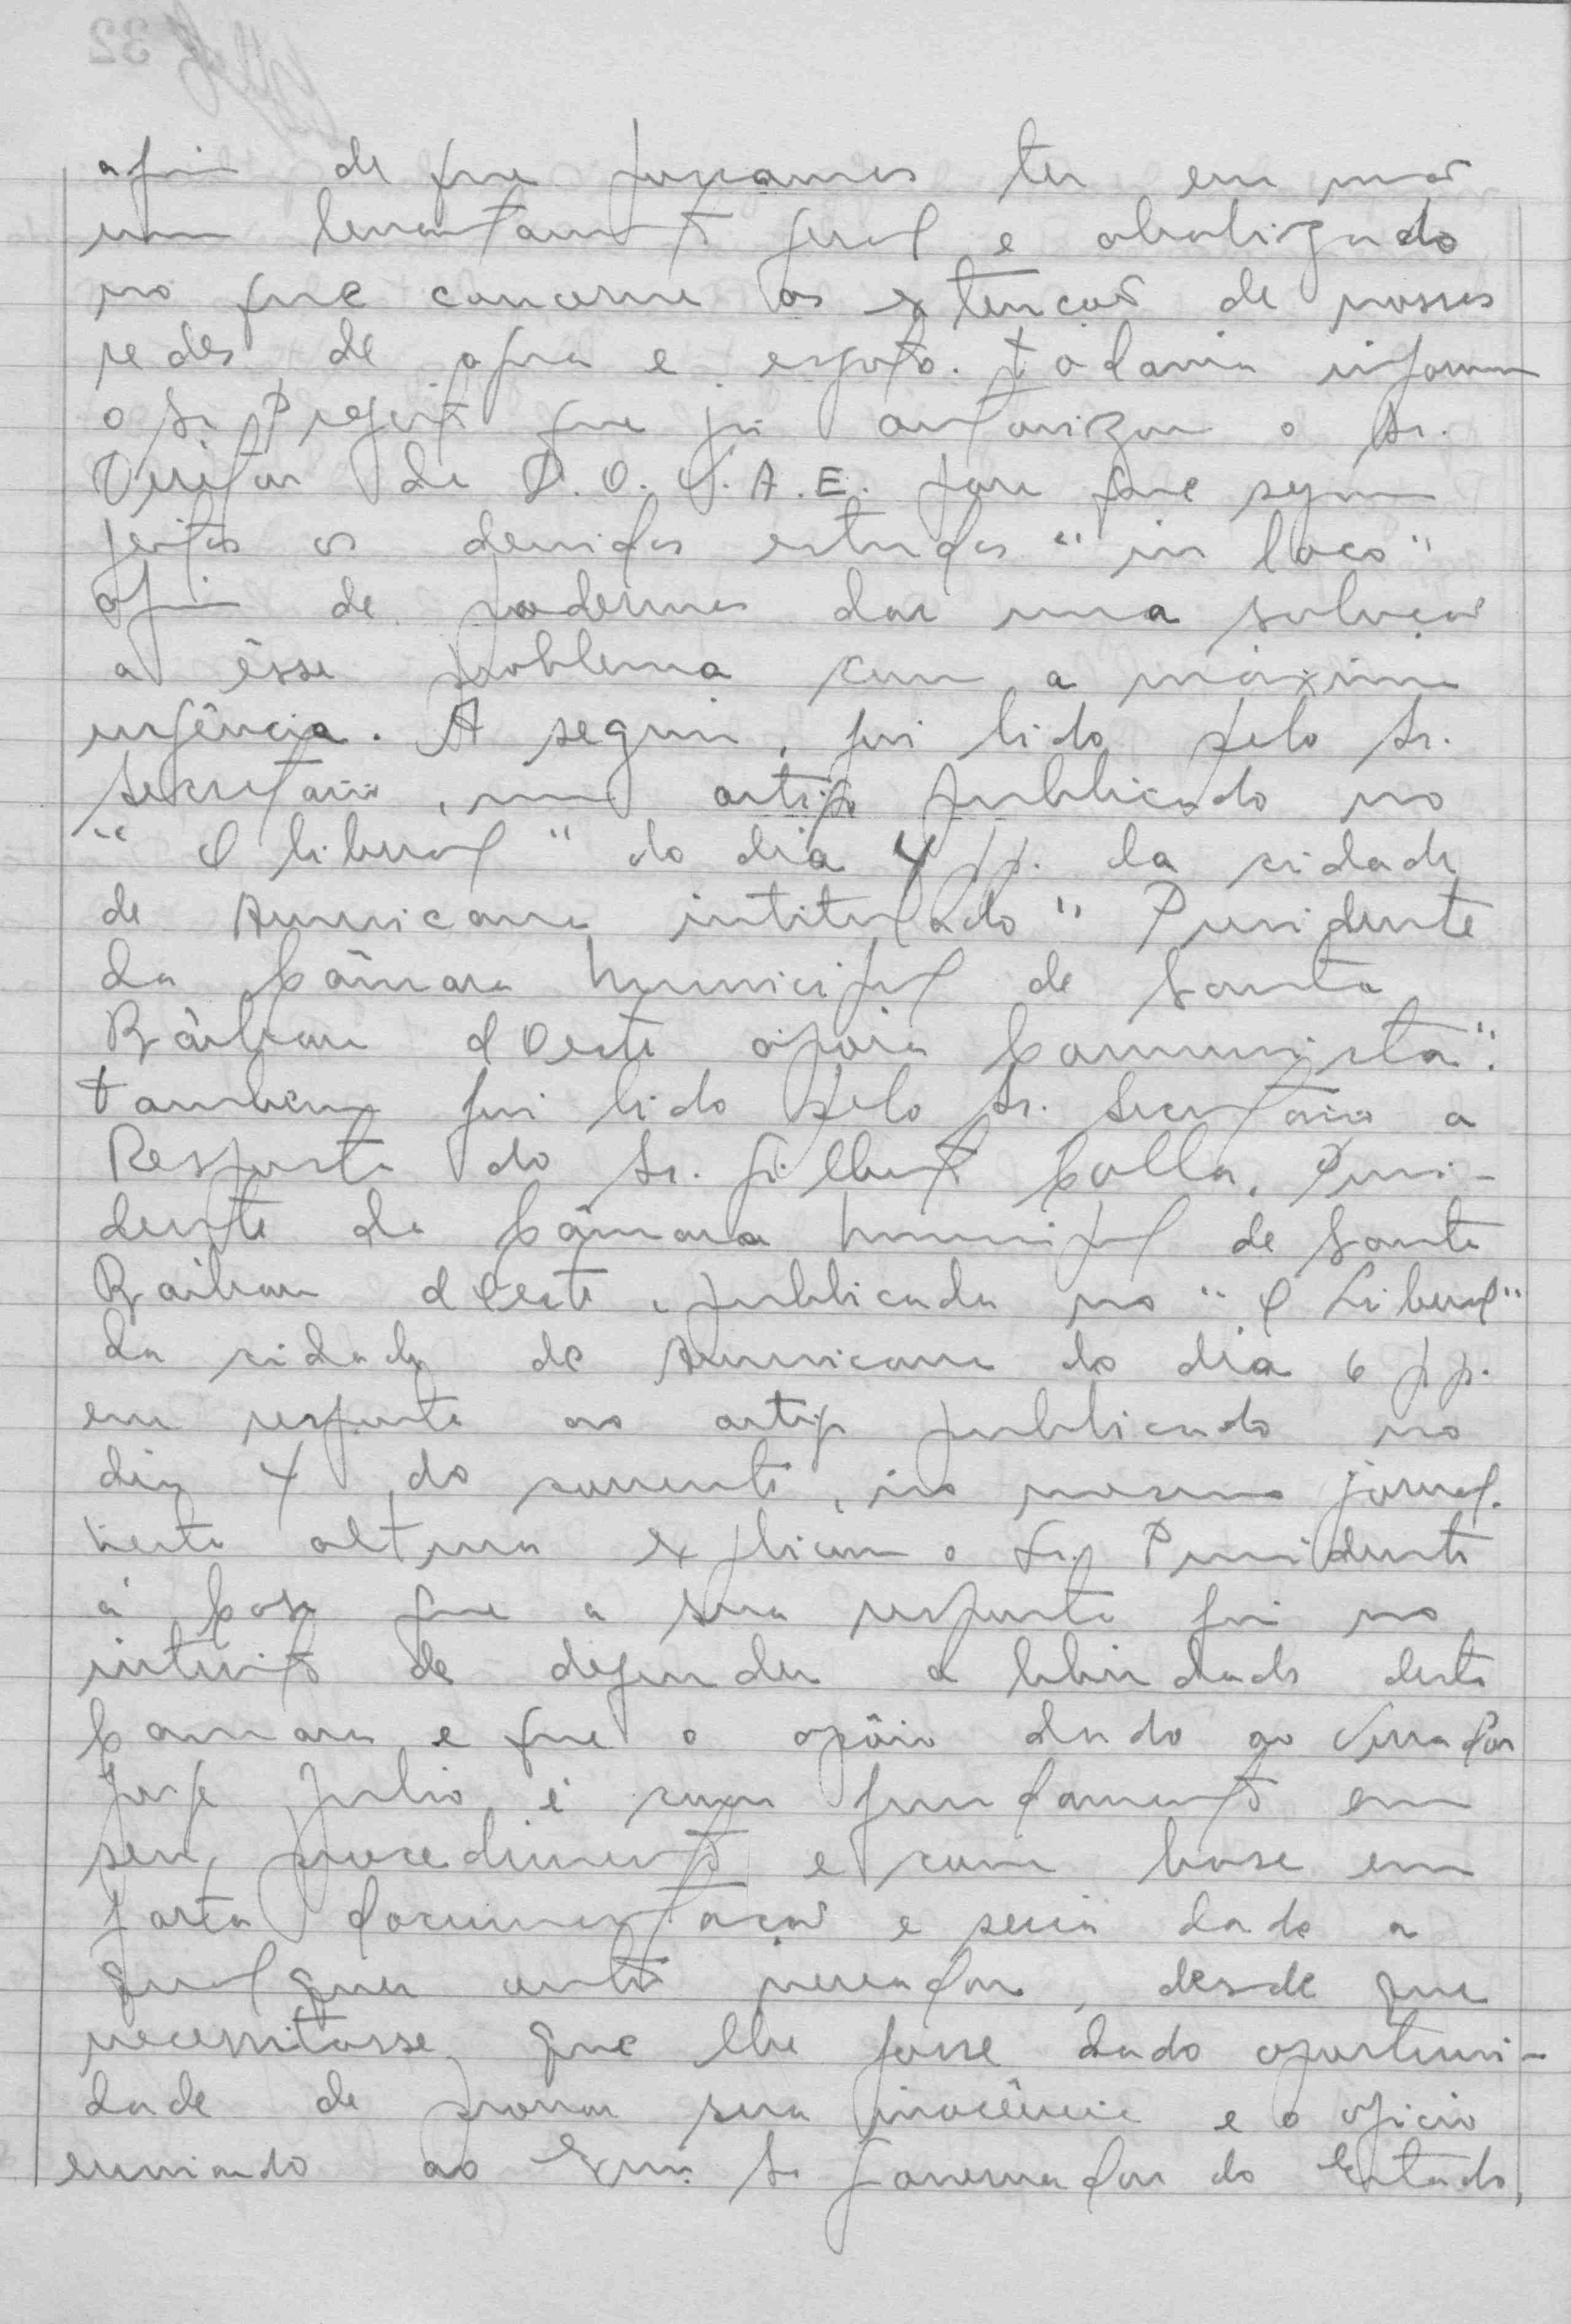 afim de que possamos ter em mãos
um levantamento geral e abalizado
no que concerne as extenções de nossas
redes de agua e esgoto. todavia informa
o Sr. Prefeito que já autorizou o Sr.
Diretor do D.O.S.A.E. para que sejam
feitos os devidos estudos "in loco"
afim de podermos dar uma solução
a êsse problema com a máxima
urgência. A seguir, foi lido pelo Sr.
Secretario, um artigo publicado no
"O liberal" do dia 4 pp. da cidade
de Americana intitulado "Presidente
da Câmara Municipal de Santa
Bárbara dOeste apoia Comunista".
também foi lido pelo Sr. Secretario a
Resposta do Sr. Gilberto Colla, Presi-
dente da Câmara Municipal de Santa
Bárbara dOeste, publicada no "O Liberal"
da cidade de Americana do dia 6 pp.
em resposta ao artigo publicado no
dia 4 do corrente, no mesmo jornal.
Nesta altura explicou o Sr. Presidente
á Casa que a sua resposta foi no
intuito de defender a liberdade desta
Camara e que o apôio dado ao Vereador
Jorge Julio é com fundamento em
seu procedimento e com base em
farta documentação e seria dado a
qualquer outro vereador, desde que
necessitasse que lhe fosse dado oportuni-
dade de provar sua inocência e o oficio
enviado ao Exmo. Sr Governador do Estado,